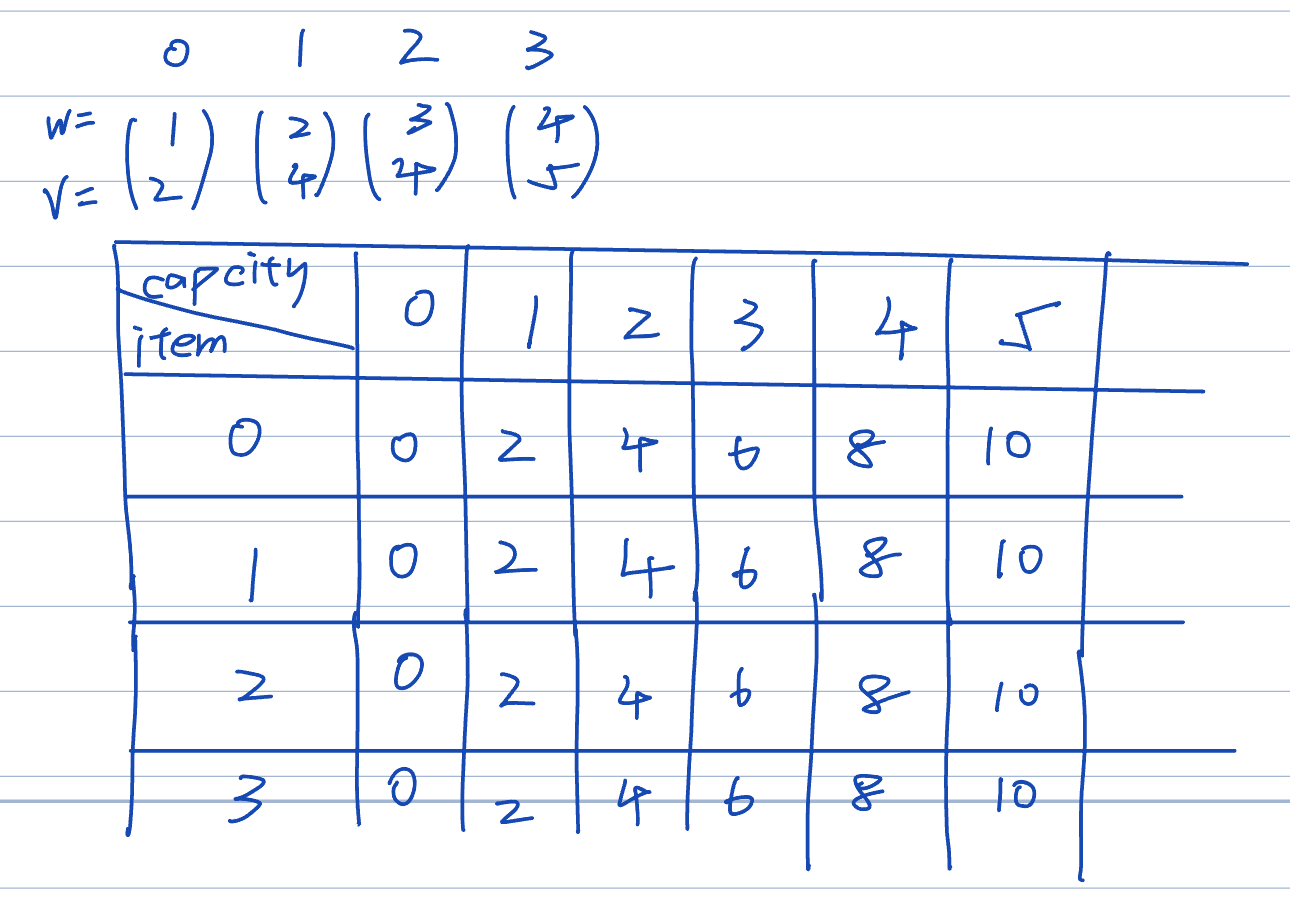 0 1 2 3
w= (1) (2) (3) (4)
V= (2) (4) (4) (5)
capcity 0 1 2 3 4 5
item
0 0 2 4 6 8 10
1 0 2 4 6 8 10
2 0 2 4 6 8 10
3 0 2 4 6 8 10